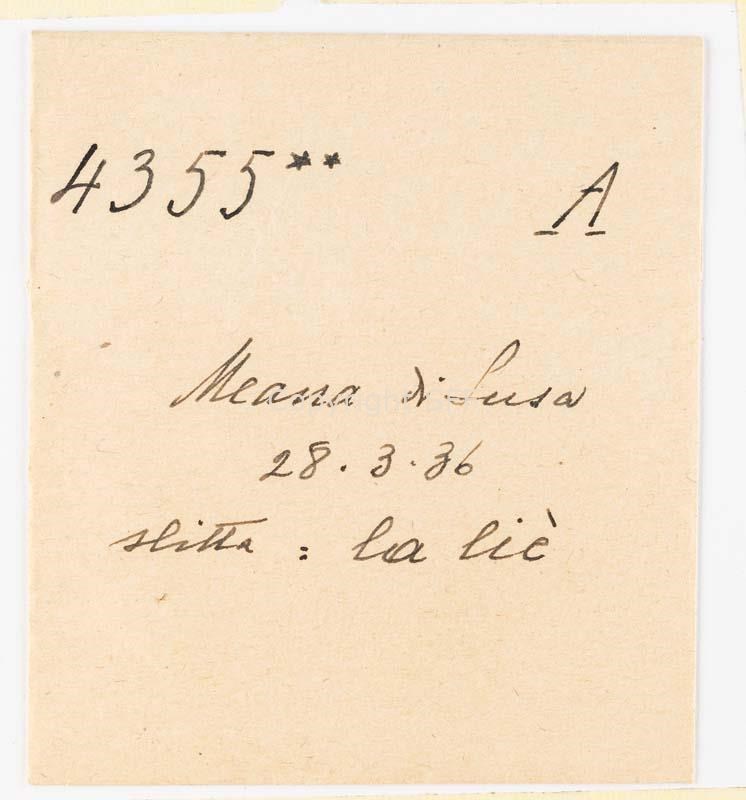 4355** A
Meana di Susa
28.3.36
slitta : la liè